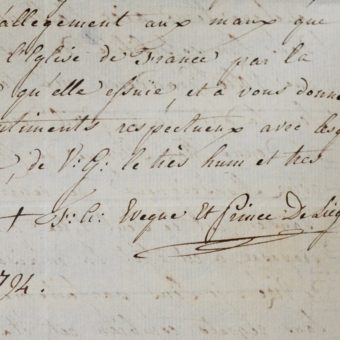 allegement aux maux que
l'Eglise de France par la
qu'elle essuie, et à vous donne
timents respectueux avec lesq
, de V: G: le très hum et tres
+ F: A: Eveque Et Prince De Lieg
794.